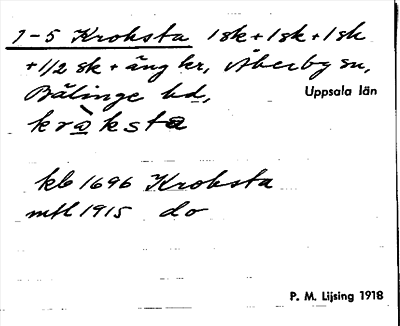 1-5 Krobsta 1 sk + 1 sk + 1 sk
+ 1/2 sk + äng hr, Åkerby sn,
Bälinge hd, Uppsala län
kràksta
kb 1696 Krobsta
mtl 1915 do
P. M. Lijsing 1918